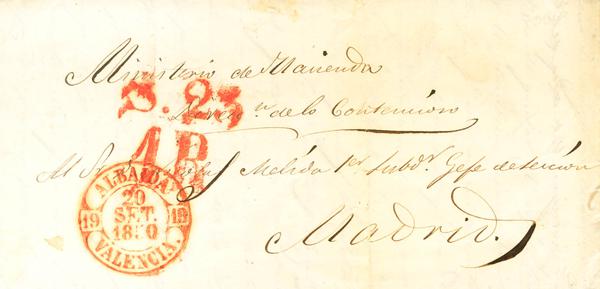 Ministerio de Hacienda
S. 23
Direcc.n de lo Contencioso
1 R
Al Sr. Mélida 1er Subdr. Gefe de seccion
ALBAIDA
20
SET.
19 19
1850
VALENCIA.
Madrid.